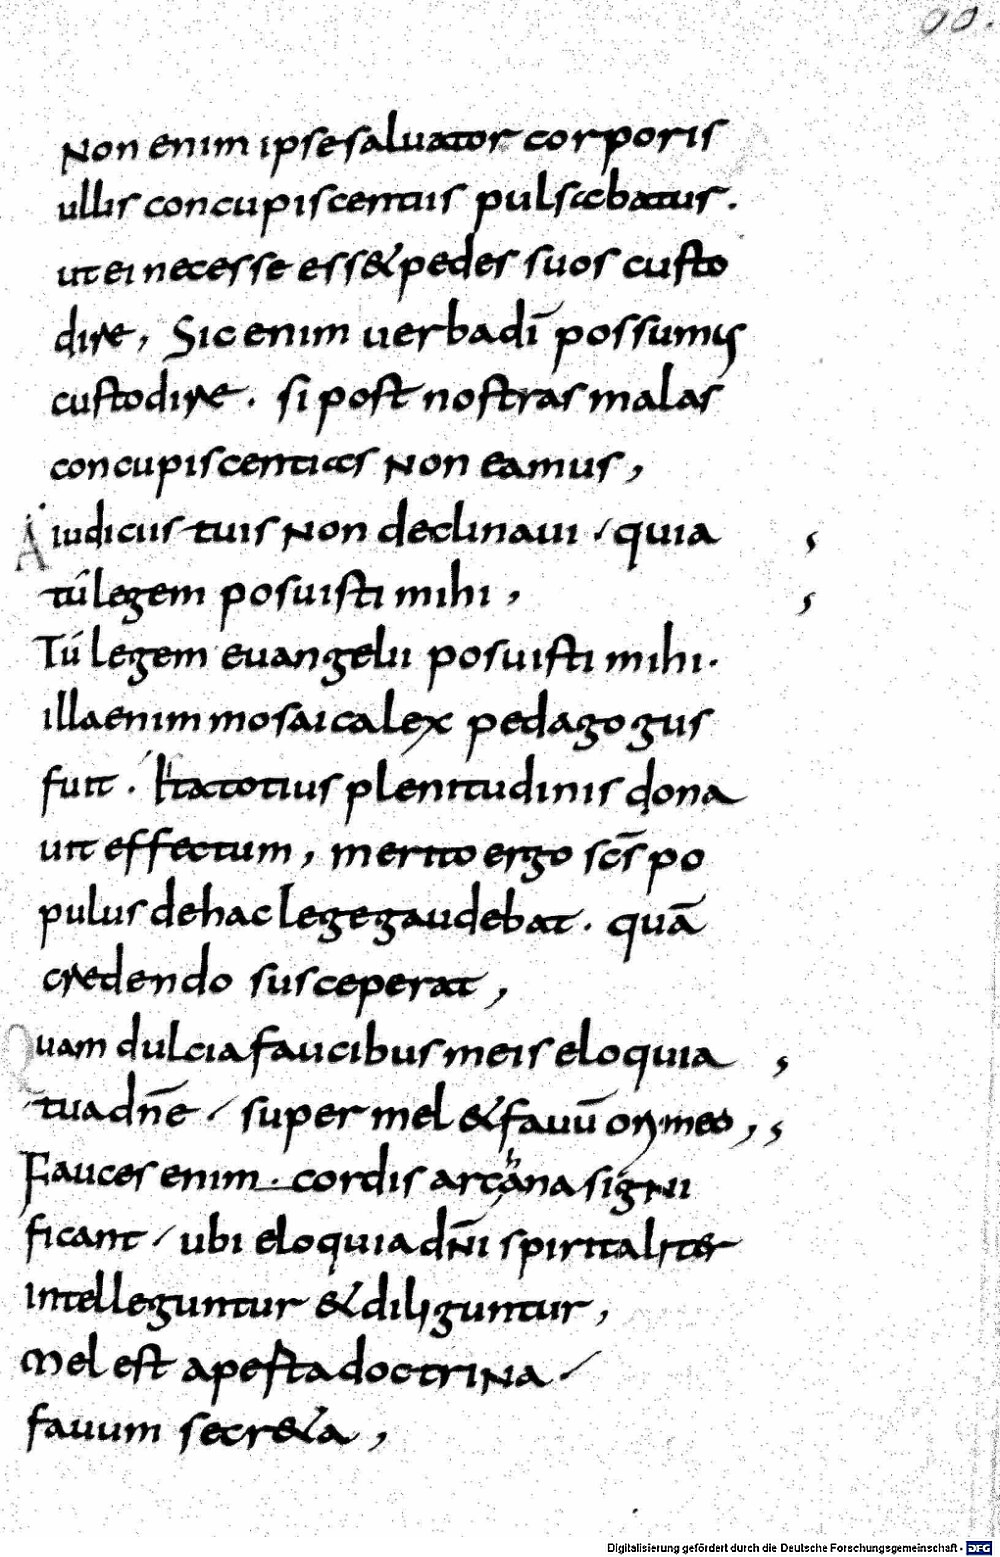 90.
Non enim ipse saluator corporis
ullis concupiscentiis pulsabatur.
ut ei necesse ess& pedes suos custo
dire, Sic enim uerba dī possumus
custodire. si post nostras malas
concupiscentias non eamus,
A iudiciis tuis non declinaui / quia ,
tú legem posuisti mihi , ,
Tú legem euangelii posuisti mihi.
illa enim mosaica lex pedagogus
fuit. Ista totius plenitudinis dona
uit effectum, merito ergo scs̄ po
pulus de hac lege gaudebat. quā
credendo susceperat,
Quam dulcia faucibus meis eloquia ,
tua dn̄e / super mel & fauū ori meo , ,
Fauces enim. cordis archana signi
ficant / ubi eloquia dn̄i spiritaliter
intelleguntur & diliguntur,
Mel est aperta doctrina /
fauum secr&a ,
Digitalisierung gefördert durch die Deutsche Forschungsgemeinschaft - DFG